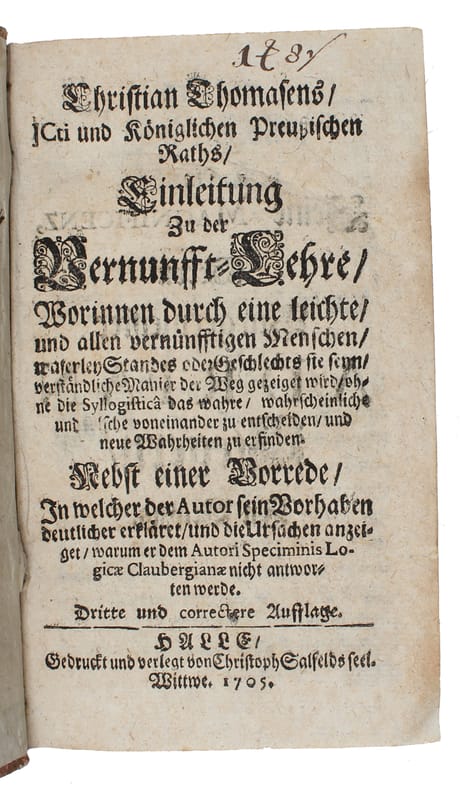 Christian Thomasens/
JCti und Königlichen Preußischen
Raths/
Einleitung
Zu der
Vernunfft-Lehre/
Worinnen durch eine leichte/
und allen vernünfftigen Menschen/
waserley Standes oder Geschlechts sie seyn/
verständliche Manier der Weg gezeiget wird/oh-
ne die Syllogisticâ das wahre/ wahrscheinliche
und lsche voneinander zu entscheiden/und
neue Wahrheiten zu erfinden.
Nebst einer Vorrede/
In welcher der Autor sein Vorhaben
deutlicher erkläret/und die Ursachen anzei-
get/warum er dem Autori Speciminis Lo-
gicæ Claubergianæ nicht antwor-
ten werde.
Dritte und correctere Aufflage.
HALLE/
Gedruckt und verlegt von Christoph Salfelds seel.
Wittwe. 1705.